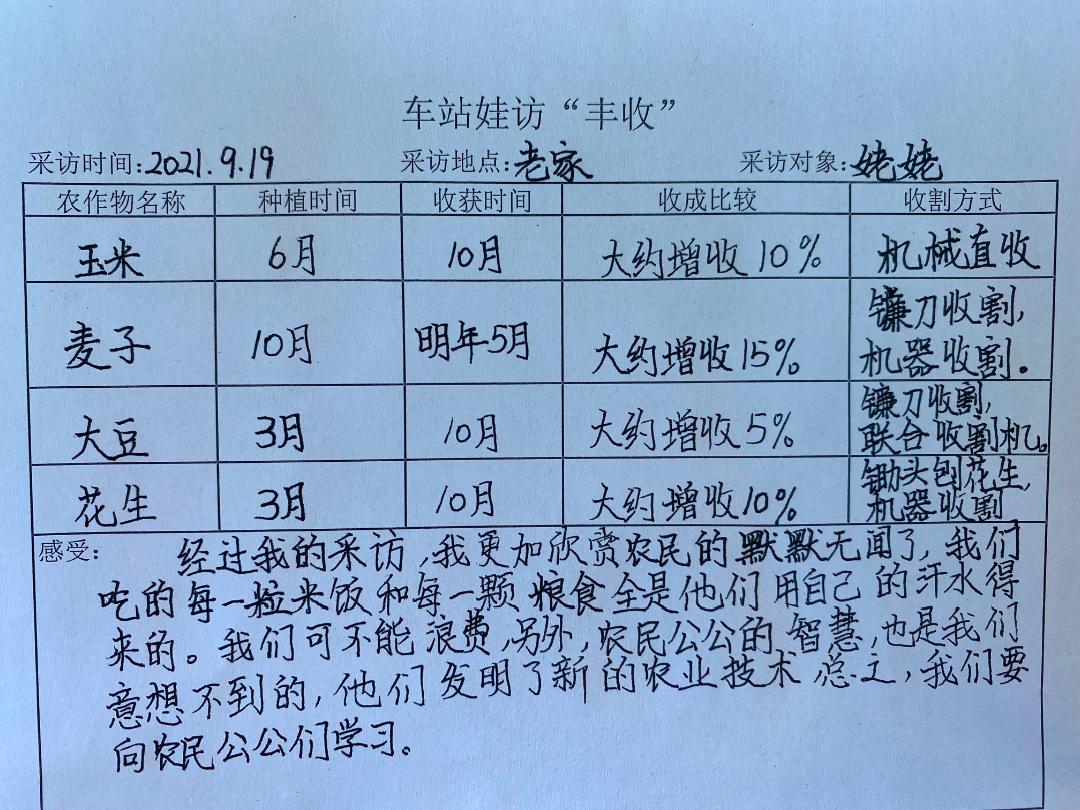 车站娃访“丰收”
采访时间:2021.9.19 采访地点:老家 采访对象:姥姥
农作物名称 种植时间 收获时间 收成比较 收割方式
玉米 6月 10月 大约增收10% 机械直收
麦子 10月 明年5月 大约增收15% 镰刀收割,
机器收割。
大豆 3月 10月 大约增收5% 镰刀收割,
联合收割机。
花生 3月 10月 大约增收10% 锄头刨花生,
机器收割
感受: 经过我的采访,我更加欣赏农民的默默无闻了,我们
吃的每一粒米饭和每一颗粮食全是他们用自己的汗水得
来的。我们可不能浪费,另外,农民公公的智慧,也是我们
意想不到的,他们发明了新的农业技术 总之,我们要
向农民公公们学习。